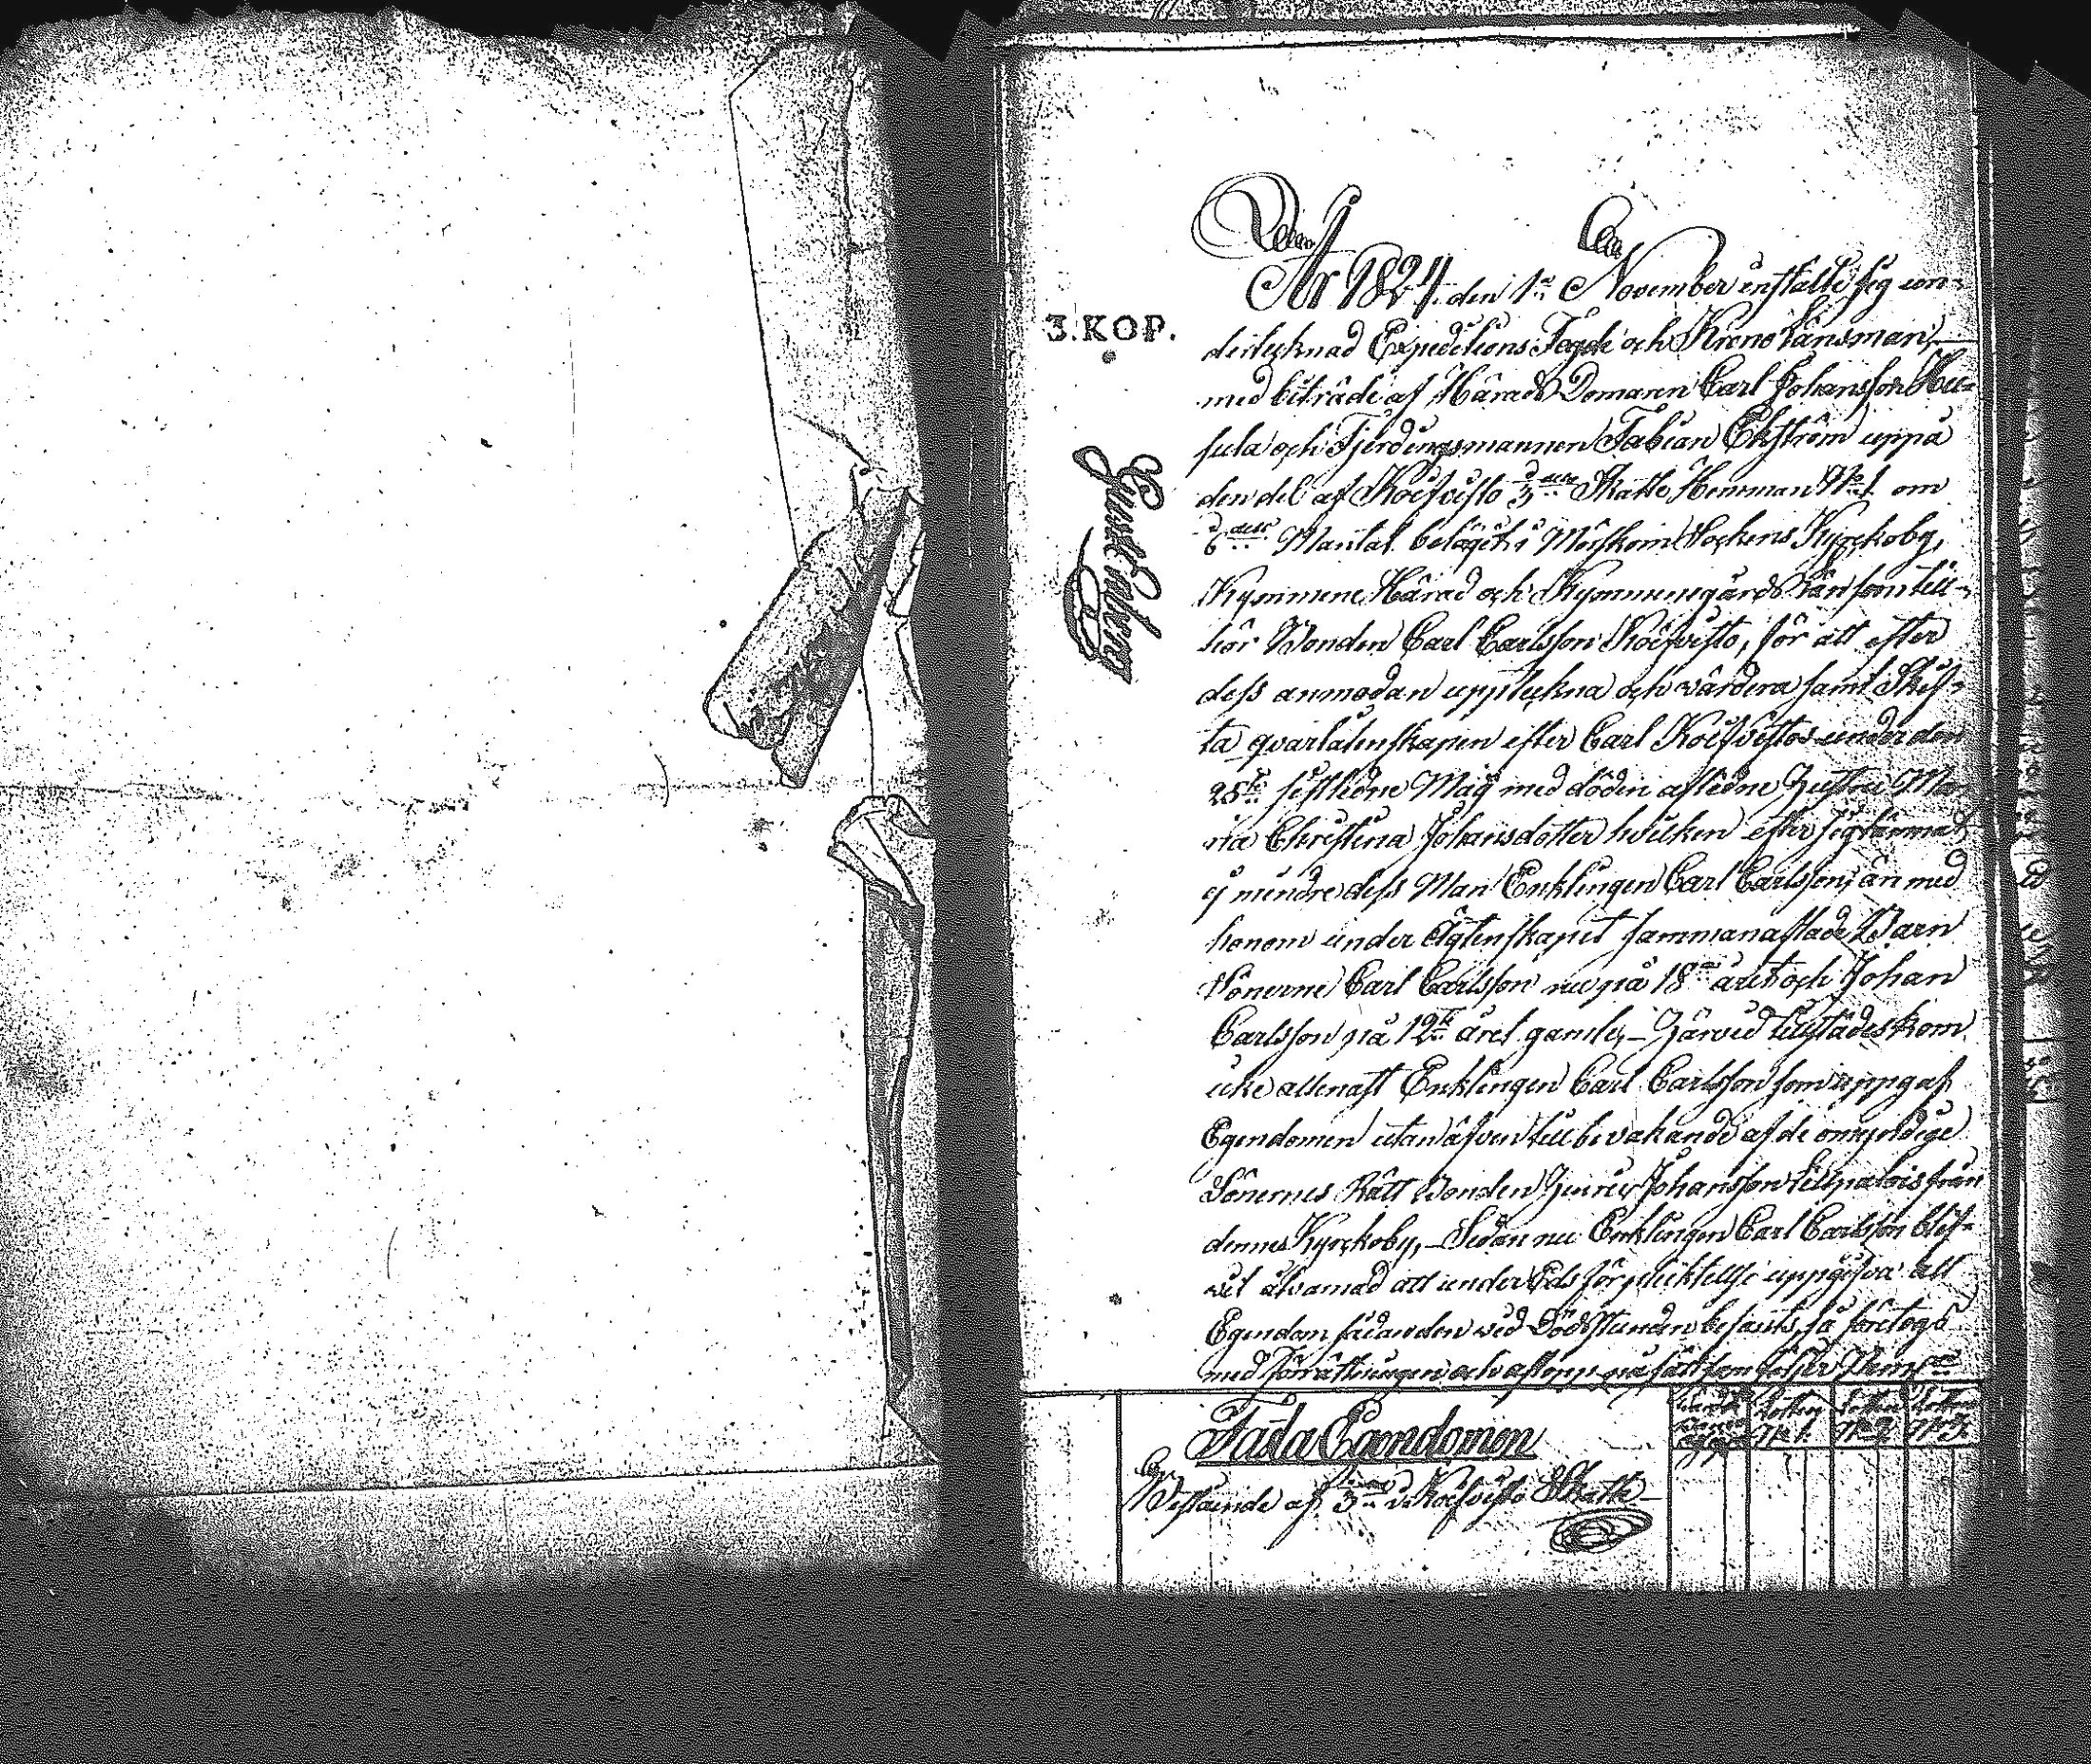 År 1824 den 1:a November instälte sig un-
3. KOP.
dertecknad Expeditions Fogde och Krono Länsman,
med biträde af Härads Domaren Carl Johansson Hu-
sula och Fjerdingsmannen Fabian Ekström uppå
den del af Koifvisto Skatte Hemman N:o 1. om
Mantal belägit i Sockens Kyrckoby,
Kymmene Härad och Kymmenegårds Län som till-
hör Bonden Carl Carlsson Koifvisto, för att efter
dess anmodan uppteckna och värdera samt Skif-
ta qvarlåtenskapen efter Carl Koifvistos under den
25:te sistledne Maij med döden aflidne Hustru Ma-
ria Christina Johansdotter hvilken efter sig lämnat
ej mindre dess Man Enklingen Carl Carlsson, än med
honom under Ägtenskapet sammanaflade Barn
Sönerne Carl Carlsson nu på 18:de året och Johan
Carlsson på 12:te året gamle, – Härvid tillstädes kom
icke allenast Enklingen Carl Carlsson som uppgaf
Egendomen utan äfven till bevakande af de omyndige
Sönernes Rätt Bonden Hinric Johansson från
denne Kyrckoby, – Sedan nu Enklingen Carl Carlsson blif-
vit åtvarnad att under Eds förplicktellse uppgifva all
Egendom sådan den vid Dödsstunden befants, så företogs
med förrättningen och aflopp på sätt som följer Nemln:
Fasta Egendomen
Bestående af Koifvisto Skatte
N:o 1. N:o 2. N:o 3.